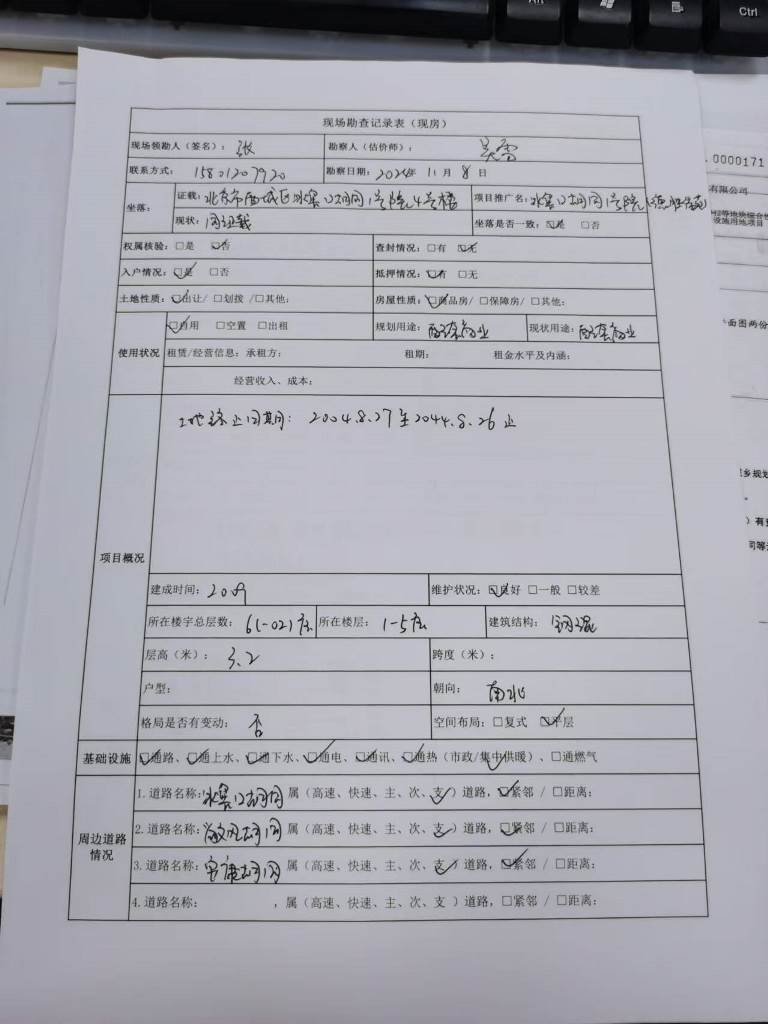 Alt
Ctrl
现场勘查记录表（现房）
现场领勘人（签名）：张 勘察人（估价师）：吴雪
联系方式：15801207920 勘察日期：2024年11月8日
坐落： 证载：北京市西城区冰窖口胡同1号院4号楼 项目推广名：冰窖口胡同1号院
现状：同证载 坐落是否一致：☑是 □否
权属核验：□是 ☑否 查封情况：□有 ☑无
入户情况：☑是 □否 抵押情况：☑有 □无
土地性质：☑出让/□划拨/□其他： 房屋性质：☑商品房/□保障房/□其他：
使用状况 ☑自用 □空置 □出租 规划用途：配套商业 现状用途：配套商业
租赁/经营信息：承租方： 租期： 租金水平及内涵：
经营收入、成本：
项目概况
土地终止日期：2004.8.27至2044.8.26止
建成时间：2009 维护状况：☑良好 □一般 □较差
所在楼宇总层数：6(-02)层 所在楼层：1-5层 建筑结构：钢混
层高（米）：3.2 跨度（米）：
户型： 朝向：南北
格局是否有变动：否 空间布局：□复式 ☑平层
基础设施 ☑通路、☑通上水、☑通下水、☑通电、☑通讯、☑通热（市政/集中供暖）、□通燃气
周边道路情况
1.道路名称：冰窖口胡同 属（高速、快速、主、次、支✓）道路，☑紧邻 / □距离：
2.道路名称：胡同 属（高速、快速、主、次、支✓）道路，☑紧邻 / □距离：
3.道路名称：安康胡同 属（高速、快速、主、次、支✓）道路，☑紧邻 / □距离：
4.道路名称： ，属（高速、快速、主、次、支）道路，□紧邻 / □距离：
.0000171
有限公司
设施用地项目
面图两份
乡规划
）有
同等